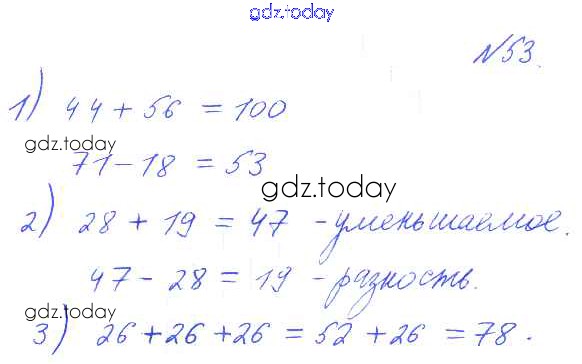 gdz.today
№53.
1) 44 + 56 = 100
gdz.today
71 - 18 = 53
gdz.today
2) 28 + 19 = 47 - уменьшаемое.
47 - 28 = 19 - разность.
gdz.today
3) 26 + 26 + 26 = 52 + 26 = 78.